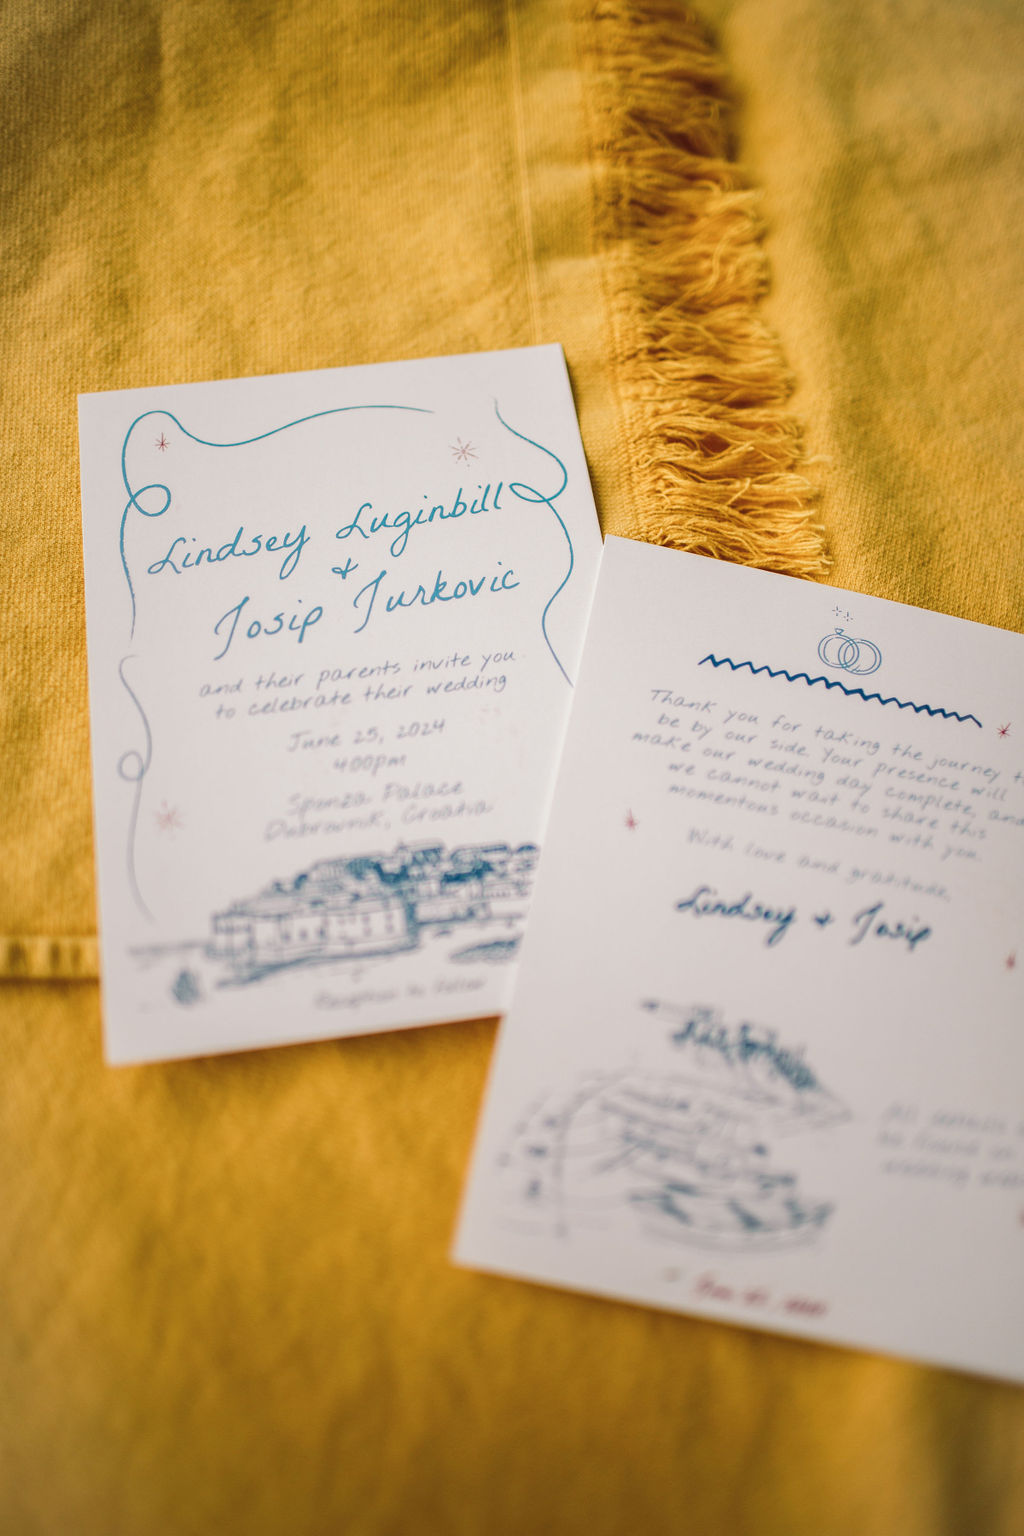 Lindsey Luginbill
+
Josip Jurkovic
and their parents invite you
to celebrate their wedding
June 25, 2024
4:00pm
Sponza Palace
Dubrovnik, Croatia
Reception to follow
Thank you for taking the journey
be by our side. Your presence will
make our wedding day complete, and
we cannot wait to share this
momentous occasion with you.
With love and gratitude,
Lindsey + Josip
All details
be found on
wedding